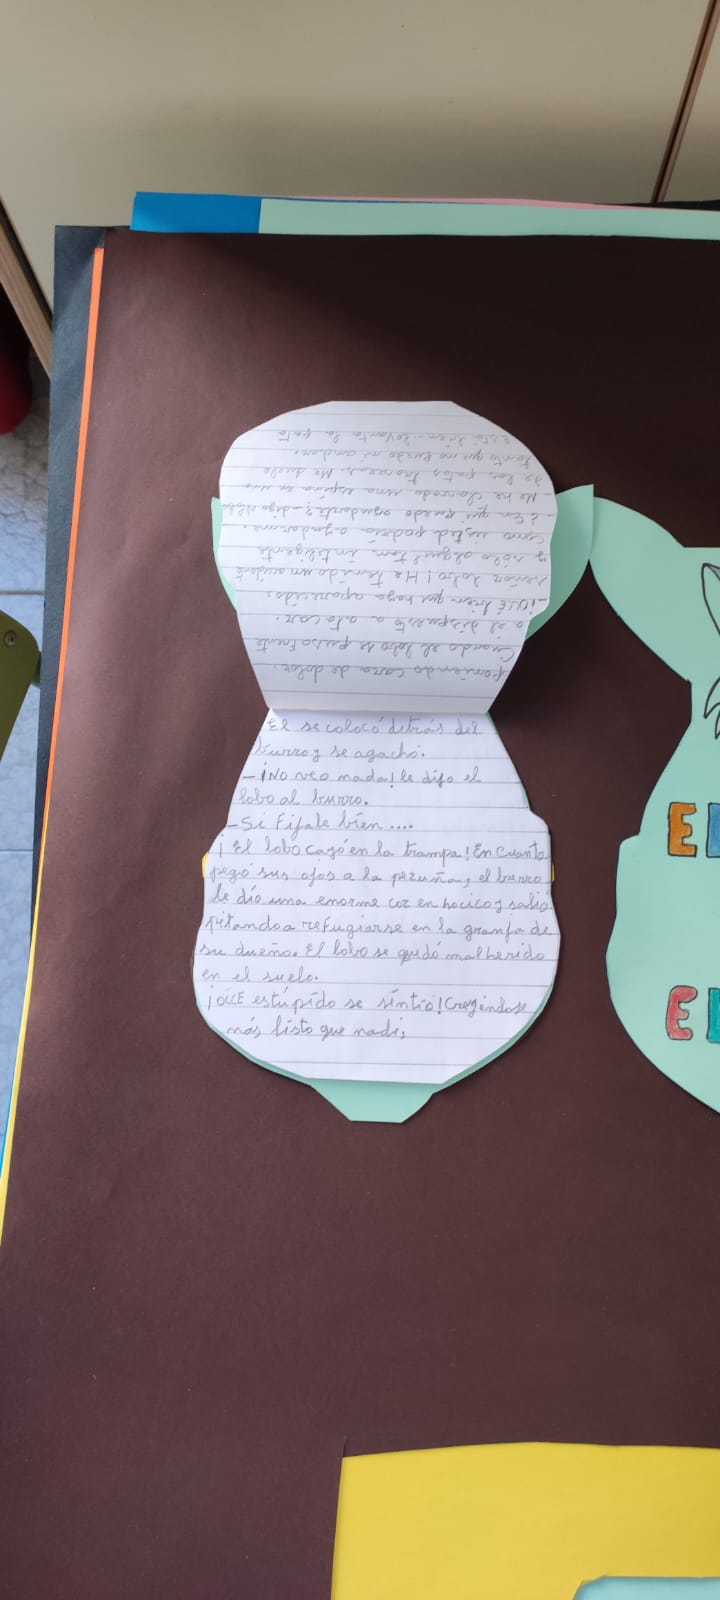 poniendo cara de dolor.
Cuando el lobo se puso frente
a el dispuesto a atacar.
-¡QUÉ bien que haya aparecido,
señor lobo! He tenido un accidente
y sólo alguilem inteligente
como usted podría ayudarme.
-¿En qui puedo ayudarte? -digo el lobo
-Me he clavado una espina en una
de las patas traseras. Me duele
tanto que no puedo ni andar.
está bien. levanta la pata
El se colocó detrás del
burro y se agachó.
-¡NO veo nada! le dijo el
lobo al burro.
-Si Fijale bien....
¡El lobo cayó en la trampa! En cuanto
pegó sus ojos a la pezuña, el burro
le dío una enorme coz en hocico y salió
pitando a refugiarse en la granja de
su dueño. El lobo se quedó mal herido
en el suelo.
¡QUE estúpido se sintió! Creyéndose
más listo que nadi;
E
E